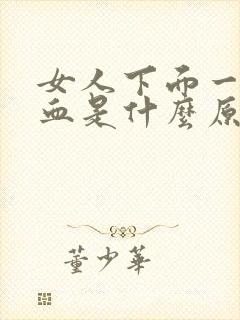 女人下而一
血是什麼原
董少華